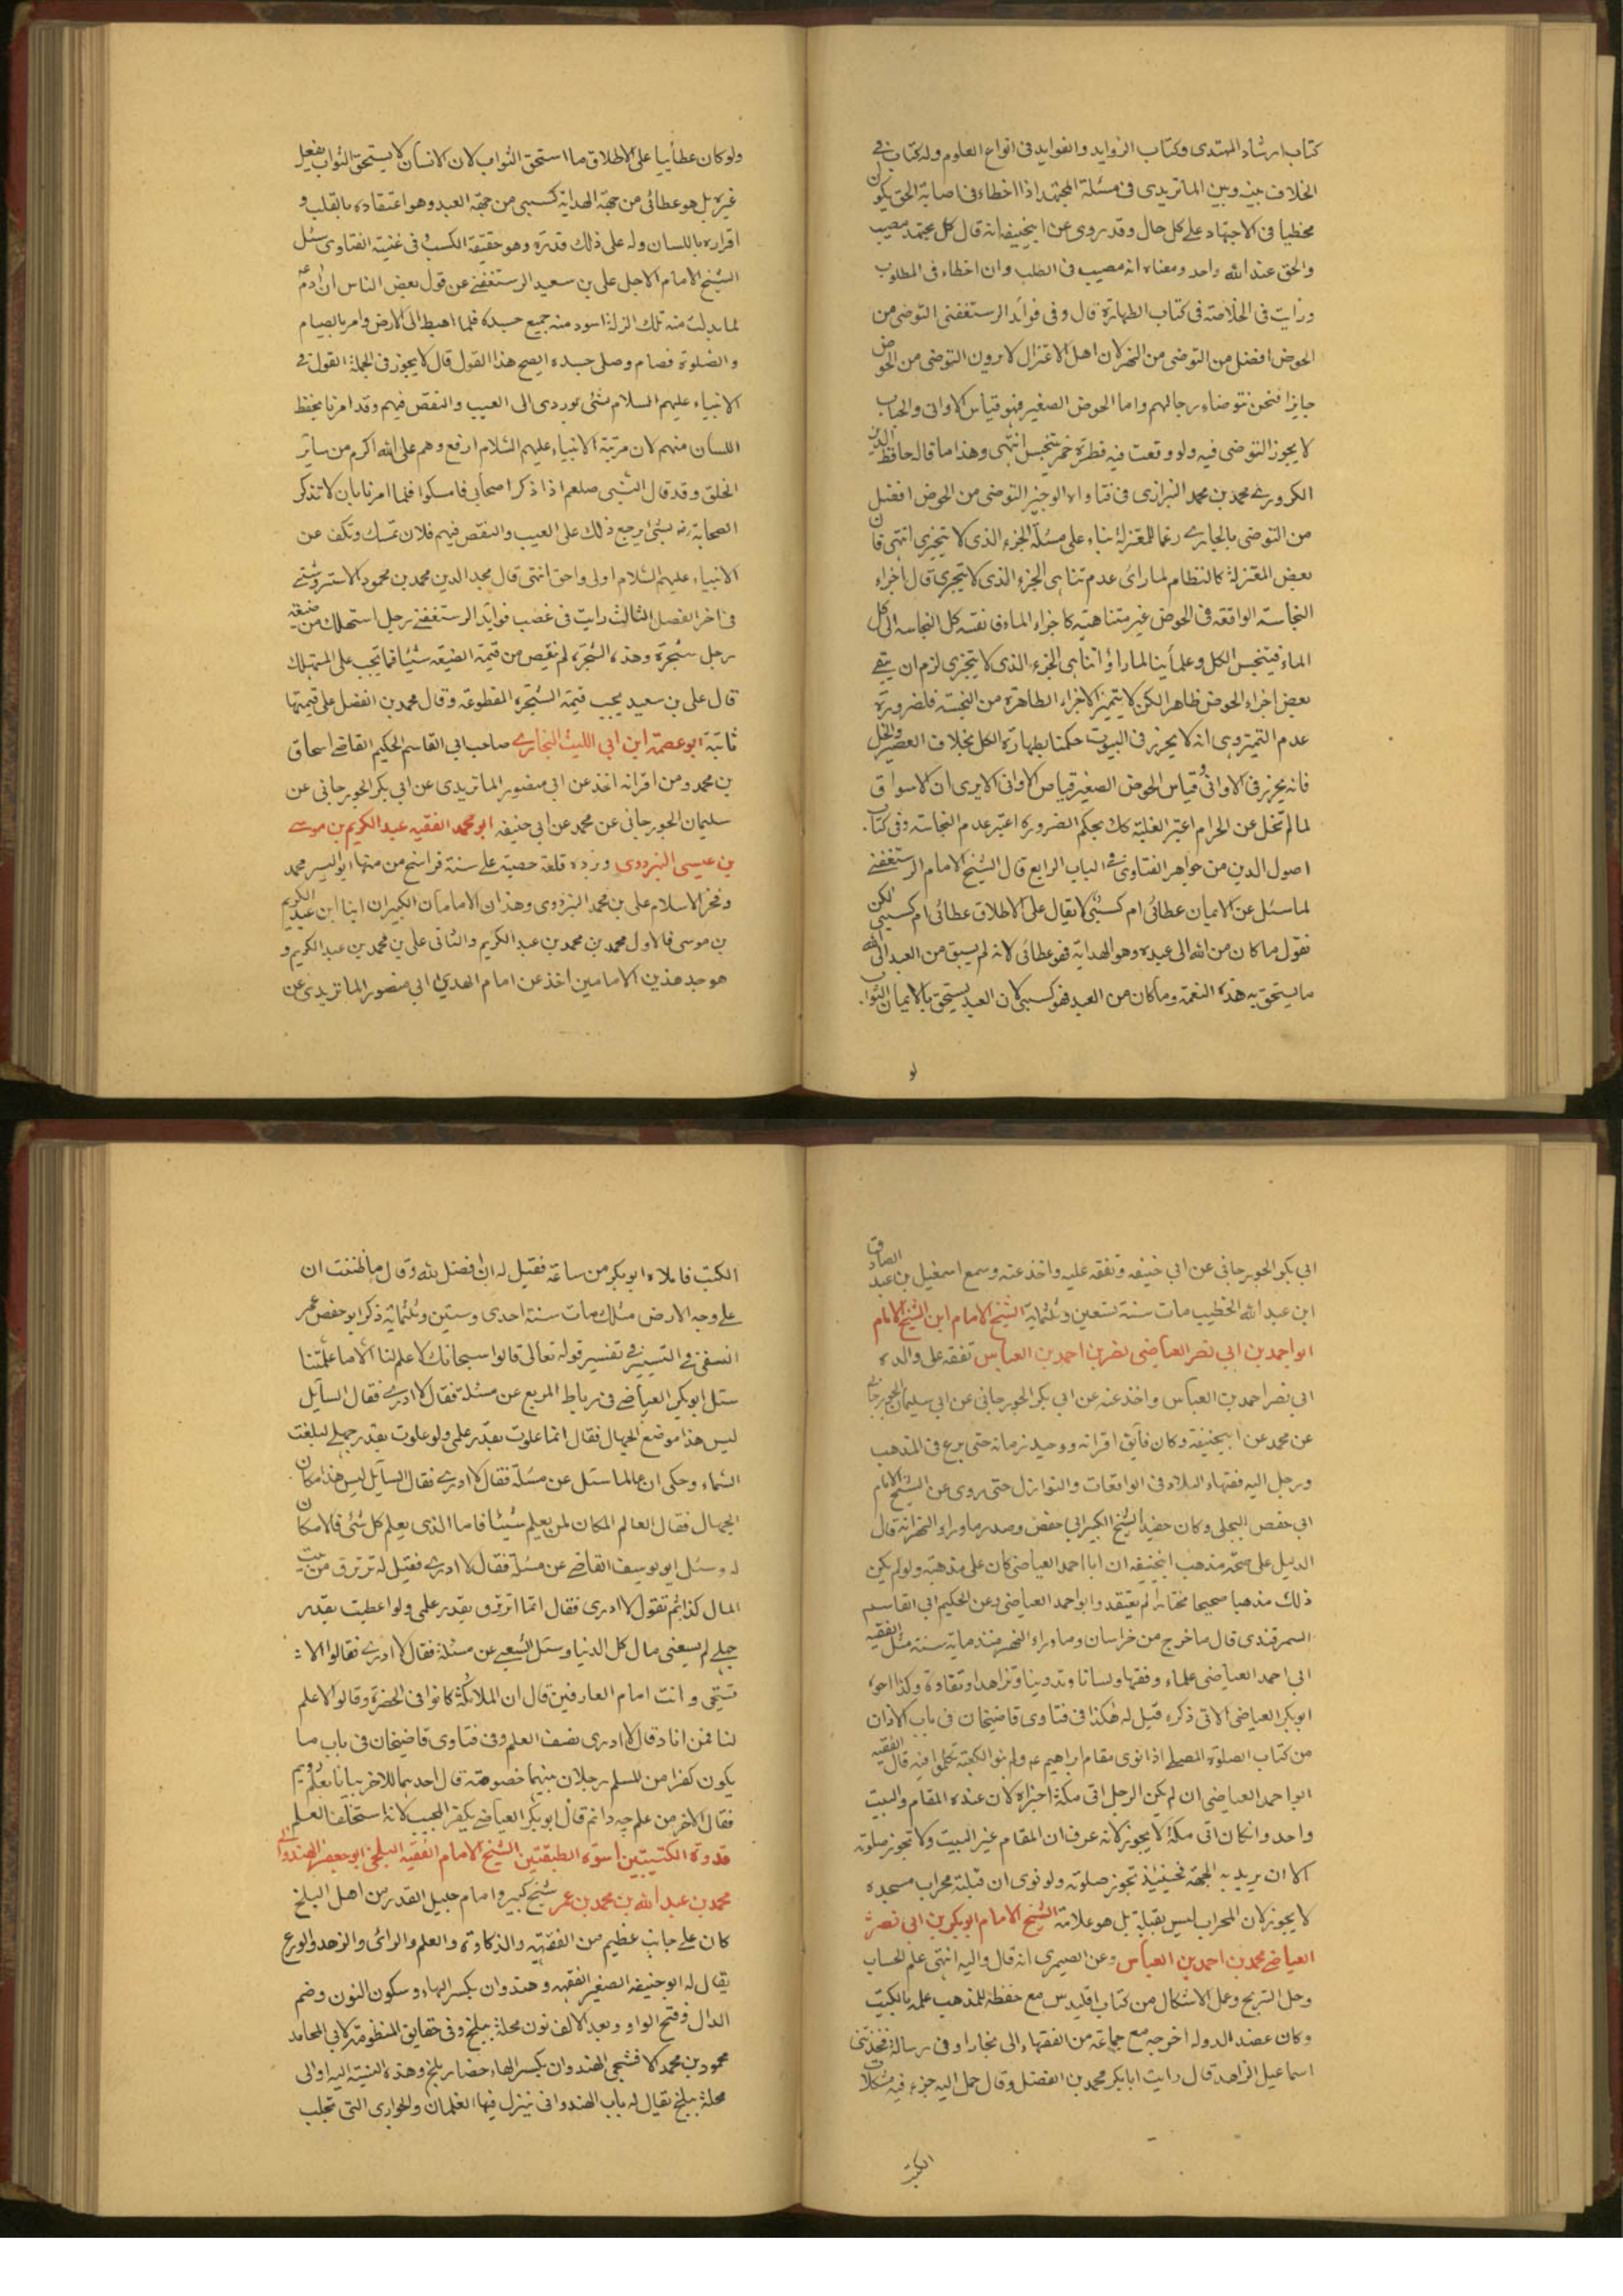 كتاب ارشاد المهتدى وكتاب الزوايد والفوايد فى انواع العلوم وله كتاب فى
الخلاف بينه وبين الماتريدى فى مسئلة المجتهد اذا اخطاء فى اصابة الحق يكون
مخطيا فى الاجتهاد على كل حال وقد روى عن ابيحنيفه انه قال كل مجتهد مصيب
والحق عند الله واحد ومعناه انه مصيب فى الطلب وان اخطاء فى المطلوب
ورأيت فى الخلاصة فى كتاب الطهارة قال وفى فوائد الرستغفنى التوضى من
الحوض افضل من التوضى من النهر لان اهل الاعتزال لا يرون التوضى من الحوض
جايزا فنحن نتوضاء رجالهم واما الحوض الصغير فهو قياس الاوانى والجباب
لا يجوز التوضى فيه ولو وقعت فيه قطرة خمر يتنجس انتهى وهذا ما قاله حافظ الدين
الكرورى محمد بن محمد البزازى فى فتاواه الوجيز التوضى من الحوض افضل
من التوضى بالجارى رغما للمعتزلة بناء على مسئلة الجزء الذى لا يتجزى انتهى فان
بعض المعتزلة كالنظام لما رائ عدم تناهى الجزء الذى لا يتجزى قال اجزاء
النجاسة الواقعة فى الحوض غير متناهية كاجزاء الماء فانقسمه كل النجاسه الى كل
الماء فيتنجس الكل وعلمأينا لما راؤا تناهى الجزء الذى لا يتجزى لزم ان يبقى
بعض اجزاء الحوض طاهرا لكن لا يتميز الاجزاء الطاهرة من النجسة فلضرورة
عدم التميز وهى انه لا يحرز فى البيوت حكمنا بطهارة الكل بخلاف العصير والخل
فانه يحرز فى الاوانى وقياس الحوض الصغير قياص الاوانى الا يرى ان الاسواق
لما لم تخل عن الحرام اعتبر الغلبة كك بحكم الضرورة اعتبر عدم النجاسة وفى كتاب
اصول الدين من جواهر الفتاوى فى الباب الرابع قال الشيخ الامام الرستغفنى
لما سئل عن الايمان عطائى ام كسبى لا يقال على الاطلاق عطائى ام كسبى لكن
نقول ما كان من الله الى عبده وهو الهداية فهو عطائى لانه لم يسبق من العبد الى الله
ما يستحق به هذه النعمة وما كان من العبد فهو كسبى لان العبد يستحق بالايمان الثواب
لو
ولو كان عطائيا على الاطلاق ما استحق الثواب لان الانسان لا يستحق الثواب بفعل
غيره بل هو عطائى من جهة الهداية كسبى من جهة العبد وهو اعتقاده بالقلب و
اقراره باللسان وله على ذلك قدرة وهو حقيقة الكسب فى غنية الفتاوى سئل
الشيخ الامام الاجل على بن سعيد الرستغفنى عن قول بعض الناس ان ادم عم
لما بدلت منه تلك الزلة اسود منه جميع جسده فلما اهبط الى الارض وامر بالصيام
والصلوة فصام وصلى جسده ايصح هذا القول قال لا يجوز فى الجملة القول فى
الانبياء عليهم السلام بشئ يوردى الى العيب والنقص فيهم وقد امرنا بحفظ
اللسان منهم لان مرتبة الانبياء عليهم السلام ارفع وهم على الله اكرم من ساير
الخلق وقد قال النبى صلعم اذا ذكر اصحابى فامسكوا فلما امرنا بان لا تذكر
الصحابة رضه بشئ يرجع ذلك على العيب والنقص فيهم فلان تمسك وتكف عن
الانبياء عليهم السلام اولى واحق انتهى قال مجد الدين محمد بن محمود الاستروشنى
فى اخر الفصل الثالث رايت فى غصب فوايد الرستغفنى رجل استهلك من ضيعة
رجل شجرة وهذه الشجرة لم تنقص من قيمة الضيعه شيئا فما يجب على المستهلك
قال على بن سعيد يجب قيمة الشجرة المقطوعة وقال محمد بن الفضل على قيمتها
ثابتة ابو عصمة ابن ابى الليث البخارى صاحب ابى القاسم الحكيم القاضى اسحاق
بن محمد ومن اقرانه اخذ عن ابى منصور الماتريدى عن ابى بكر الجورجانى عن
سليمان الجورجانى عن محمد عن ابى حنيفه ابو محمد الفقيه عبد الكريم بن موسى
بن عيسى البزدوى وبزده قلعة حصينة على ستة فراسخ من منها ابو اليسر محمد
وفخر الاسلام على بن محمد البزدوى وهذان الامامان الكبيران ابنا ابن عبد الكريم
بن موسى فالاول محمد بن محمد بن عبد الكريم والثانى على بن محمد بن عبد الكريم و
هو جد هذين الامامين اخذ عن امام الهدى ابى منصور الماتريدى عن
ابى بكر الجورجانى عن ابى حنيفه وتفقه عليه واخذ عنه وسمع اسمعيل بن عبد الصادق
ابن عبد الله الخطيب مات سنة تسعين وثلثمايه الشيخ الامام ابن الشيخ الامام
ابو احمد بن ابى نصر العياضى نصر بن احمد بن العباس تفقه على والده
ابى نصر احمد بن العباس واخذ عنه عن ابى بكر الجورجانى عن ابى سليمان الجورجانى
عن محمد عن ابيحنيفة وكان فايق اقرانه ووحيد زمانه حتى برع فى المذهب
ورحل اليه فقهاء البلاد فى الواقعات والنوازل حتى روى عن الشيخ الامام
ابى حفص البجلى وكان حفيد الشيخ الكبير ابى حفص وصدر ماوراء النهر انه قال
الدليل على صحة مذهب ابيحنيفه ان ابا احمد العياضى كان على مذهبه ولو لم يكن
ذلك مذهبا صحيحا مختارا لم يعتقد وابو احمد العياضى وعن الحكيم ابى القاسم
السمرقندى قال ما خرج من خراسان وماوراء النهر منذ ماية سنة مثل الفقيه
ابى احمد العياضى علماء وفقها ولسانا وتدينا وتزاهدا ونقادة وكذا اخوه
ابو بكر العياضى الاتى ذكره قيل له هكذا فى فتاوى قاضيخان فى باب الاذان
من كتاب الصلوة المصلى اذا نوى مقام ابراهيم عم ولم ينو الكعبة تكلموا فيه قال الفقيه
ابو احمد العياضى ان لم يكن الرجل اتى مكة اجزاه لان عنده المقام والبيت
واحد وان كان اتى مكة لا يجوز لانه عرف ان المقام غير البيت ولا تجوز صلوته
الا ان يريد به الجهة فحينئذ تجوز صلوته ولو نوى ان قبلته محراب مسجده
لا يجوز لان المحراب ليس بقبلة بل هو علامة الشيخ الامام ابو بكر بن ابى نصر
العياضى محمد بن احمد بن العباس وعن الصيمرى انه قال واليه انتهى علم الحساب
وحل الزيج وعلى الاشكال من كتاب اقليدس مع حفظه للمذهب علمه بالكيت
وكان عضد الدوله اخرجه مع جماعة من الفقهاء الى بخارا وفى رسالة
اسماعيل الزاهد قال رايت ابا بكر محمد بن الفضل وقال حمل اليه جزء فيه مشكلات
الكتب
الكتب فاملاه ابو بكر من ساعته فقيل له ان فضل لله وقال ما ظننت ان
على وجه الارض مثلك مات سنة احدى وستين وثلثماية ذكر ابو حفص عمر
النسفى فى التيسير فى تفسير قوله تعالى قالوا سبحانك لا علم لنا الا ما علمتنا
سئل ابو بكر العياضى فى رباط المربع عن مسئلة فقال لا ادرى فقال السايل
ليس هذا موضع الجهال فقال انما علوت بقدر علمى ولو علوت بقدر جهلى لبلغت
السماء وحكى ان عالما سئل عن مسئلة فقال لا ادرى فقال السايل ليس هذا مكان
الجهال فقال العالم المكان لمن يعلم شيئا فاما الذى يعلم كل شئ فلا مكان
له وسئل ابو يوسف القاضى عن مسئلة فقال لا ادرى فقيل له ترتزق من بيت
المال كذا ثم تقول لا ادرى فقال انما ارتزق بقدر علمى ولو اعطيت بقدر
جهلى لم يسعنى مال كل الدنيا وسئل الشعبى عن مسئلة فقال لا ادرى فقالوا الا
تستحى وانت امام العارفين قال ان الملائكة كانوا فى الحضرة وقالوا لا علم
لنا فمن انا وقال لا ادرى نصف العلم وفى فتاوى قاضيخان فى باب ما
يكون كفرا من المسلم رجلان بينهما خصومة قال احدهما للاخر بيا تا بعلم رويم
فقال الاخر من علم چه دانم قال ابو بكر العياضى يكفر المجيب لانه استخف العلم
قدوة الكتيبتين اسوة الطبقتين الشيخ الامام الفقيه البلخى ابو جعفر الهندوانى
محمد بن عبد الله بن محمد بن عمر شيخ كبير وامام جليل القدر من اهل البلخ
كان على جانب عظيم من الفقه والذكاوة والعلم والرائ والزهد والورع
يقال له ابو حنيفه الصغير الفقهه وهندوان بكسر الهاء وسكون النون وضم
الدال وفتح الواو وبعد الالف نون محلة ببلخ وفى حقايق المنظومة لابى المحامد
محمود بن محمد الافشنجى الهندوان بكسر الهاء حصار بلخ وهذه النسبة اليه او الى
محلة ببلخ يقال له باب الهندوانى ينزل فيها الغلمان والجوارى التى تجلب